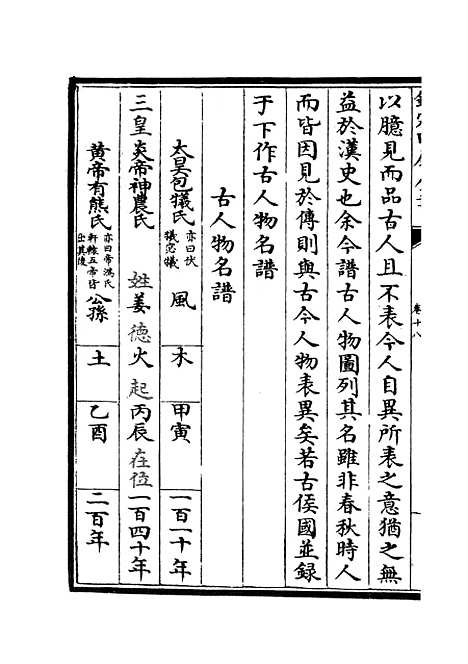 卷十八
以臆見而品古人且不表今人自異所表之意猶之無
益於漢史也余今譜古人物圖列其名雖非春秋時人
而皆因見於傳則與古今人物表異矣若古侯國並録
于下作古人物名譜
古人物名譜
太昊包犧氏 亦曰伏犧宓犧 風 木 甲寅 一百一十年
三皇炎帝神農氏 姓姜 德火 起丙辰 在位一百四十年
黄帝有熊氏 亦曰帝鴻氏軒轅五帝皆其後 公孫 土 乙酉 二百年